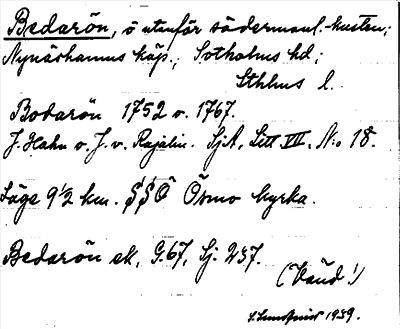 Bedarön, ö utanför södermanl. kusten;
Nynäshamns köp., Sotholms hd;
Sthlms l.
Bodarön 1752 o. 1767.
J. Hahn o. J. v. Rajalin. SjA, Litt. VII, N:o 18.
Läge 9 1/2 km. SSO Ösmo kyrka.
Bedarön ek, G.67, Sj. 237.
(Vänd!)
1939.